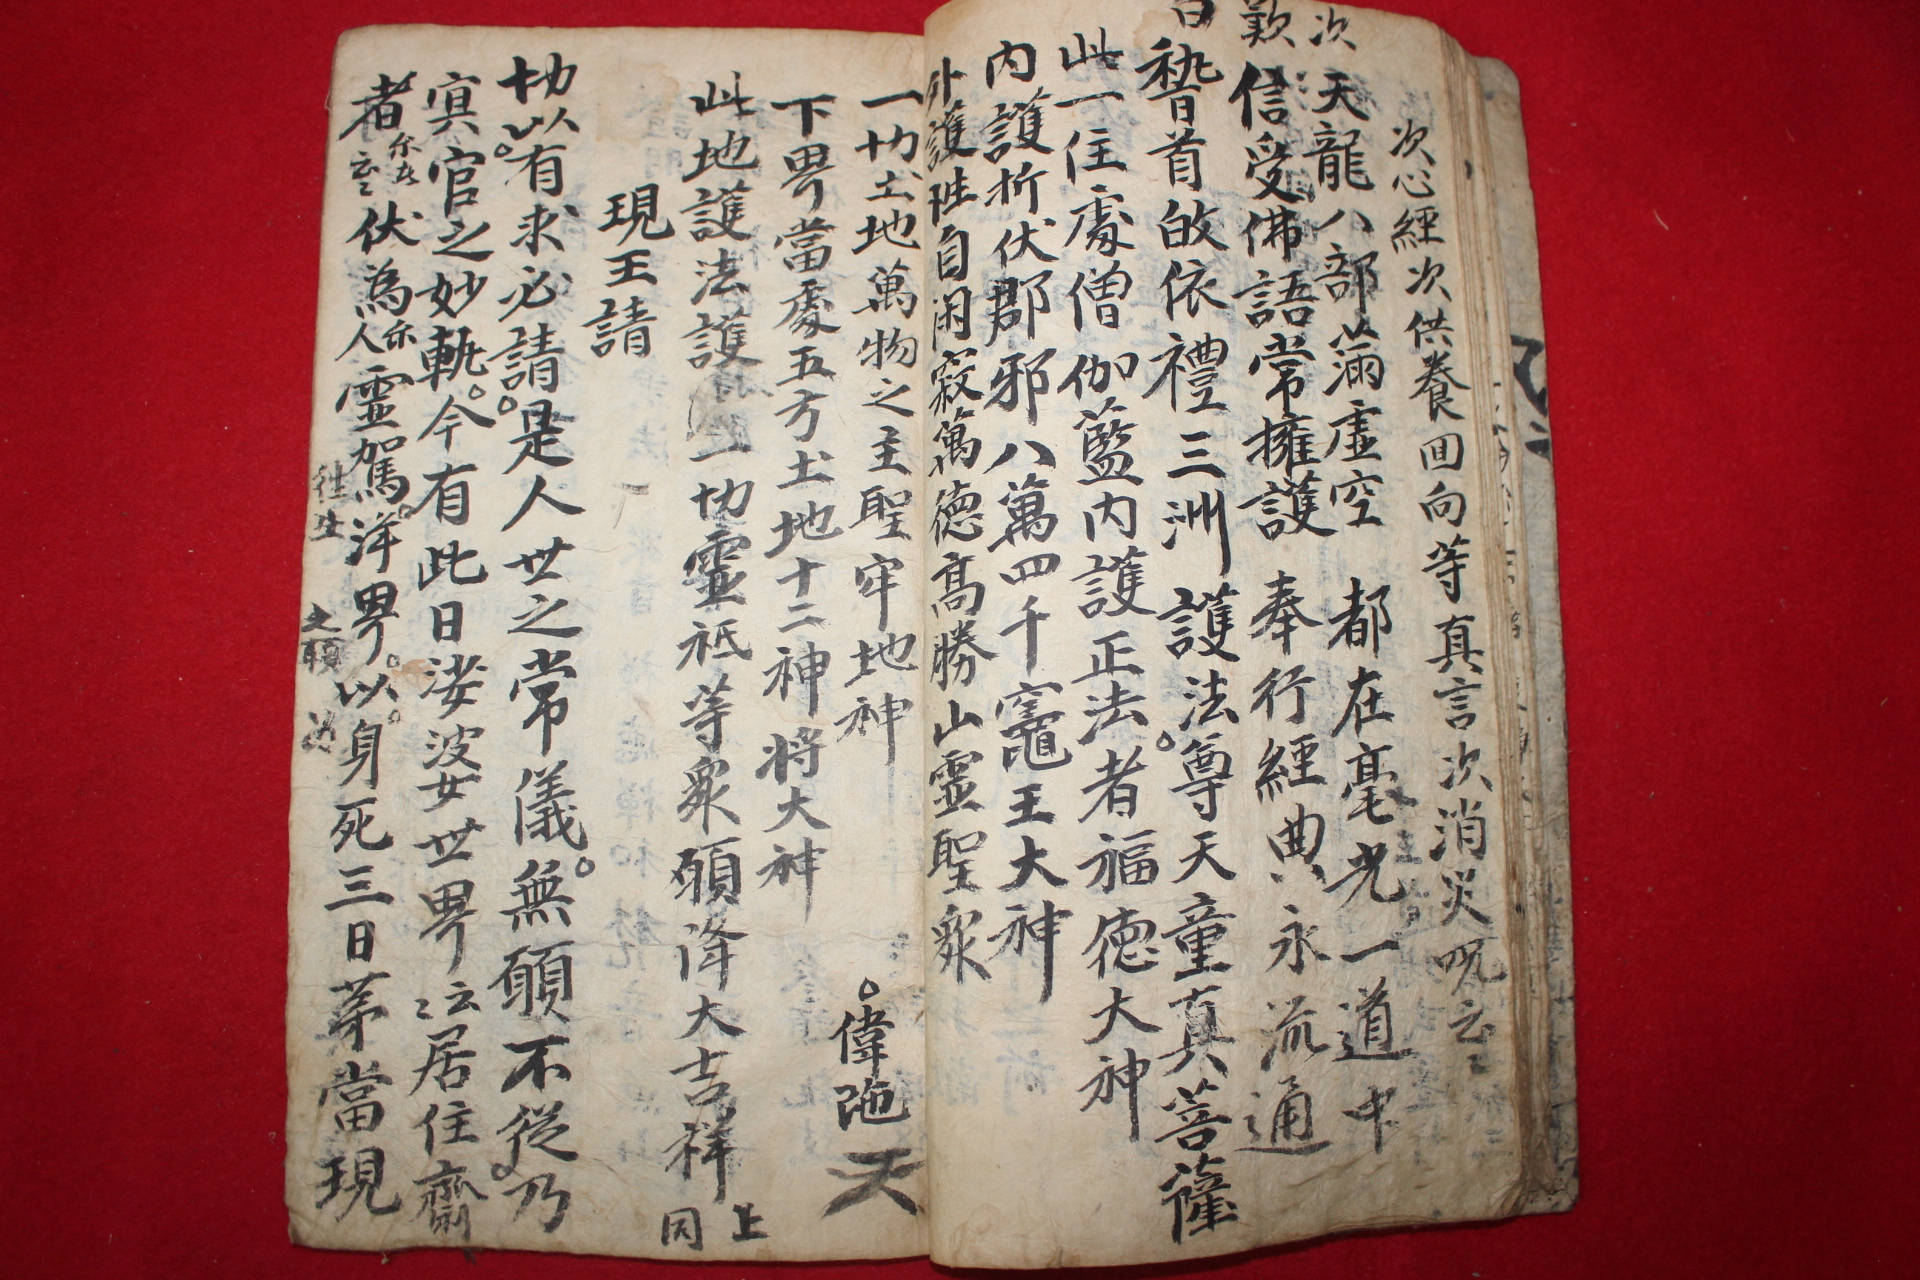 次心經次供養回向等真言次消災呪云云
次 天龍八部滿虛空 都在毫光一道中
歎 信受佛語常擁護 奉行經典永流通
白 稽首皈依禮三洲護法尊天童真菩薩
此一住處僧伽藍內護正法者福德大神
內護折伏群邪八萬四千竈王大神
外護性自閑寂萬德高勝山靈聖衆
一切土地萬物之主聖牢地神
偉陁天
下界當處五方土地十二神將大神
此地護法護 一切靈祇等衆願降大吉祥 上同
現王請
切以有求必請是人世之常儀無願不從乃
冥官之妙軌今有此日娑婆世界云云居住齋
者 伏爲 靈駕 界以身死三日第當現
往生
之願